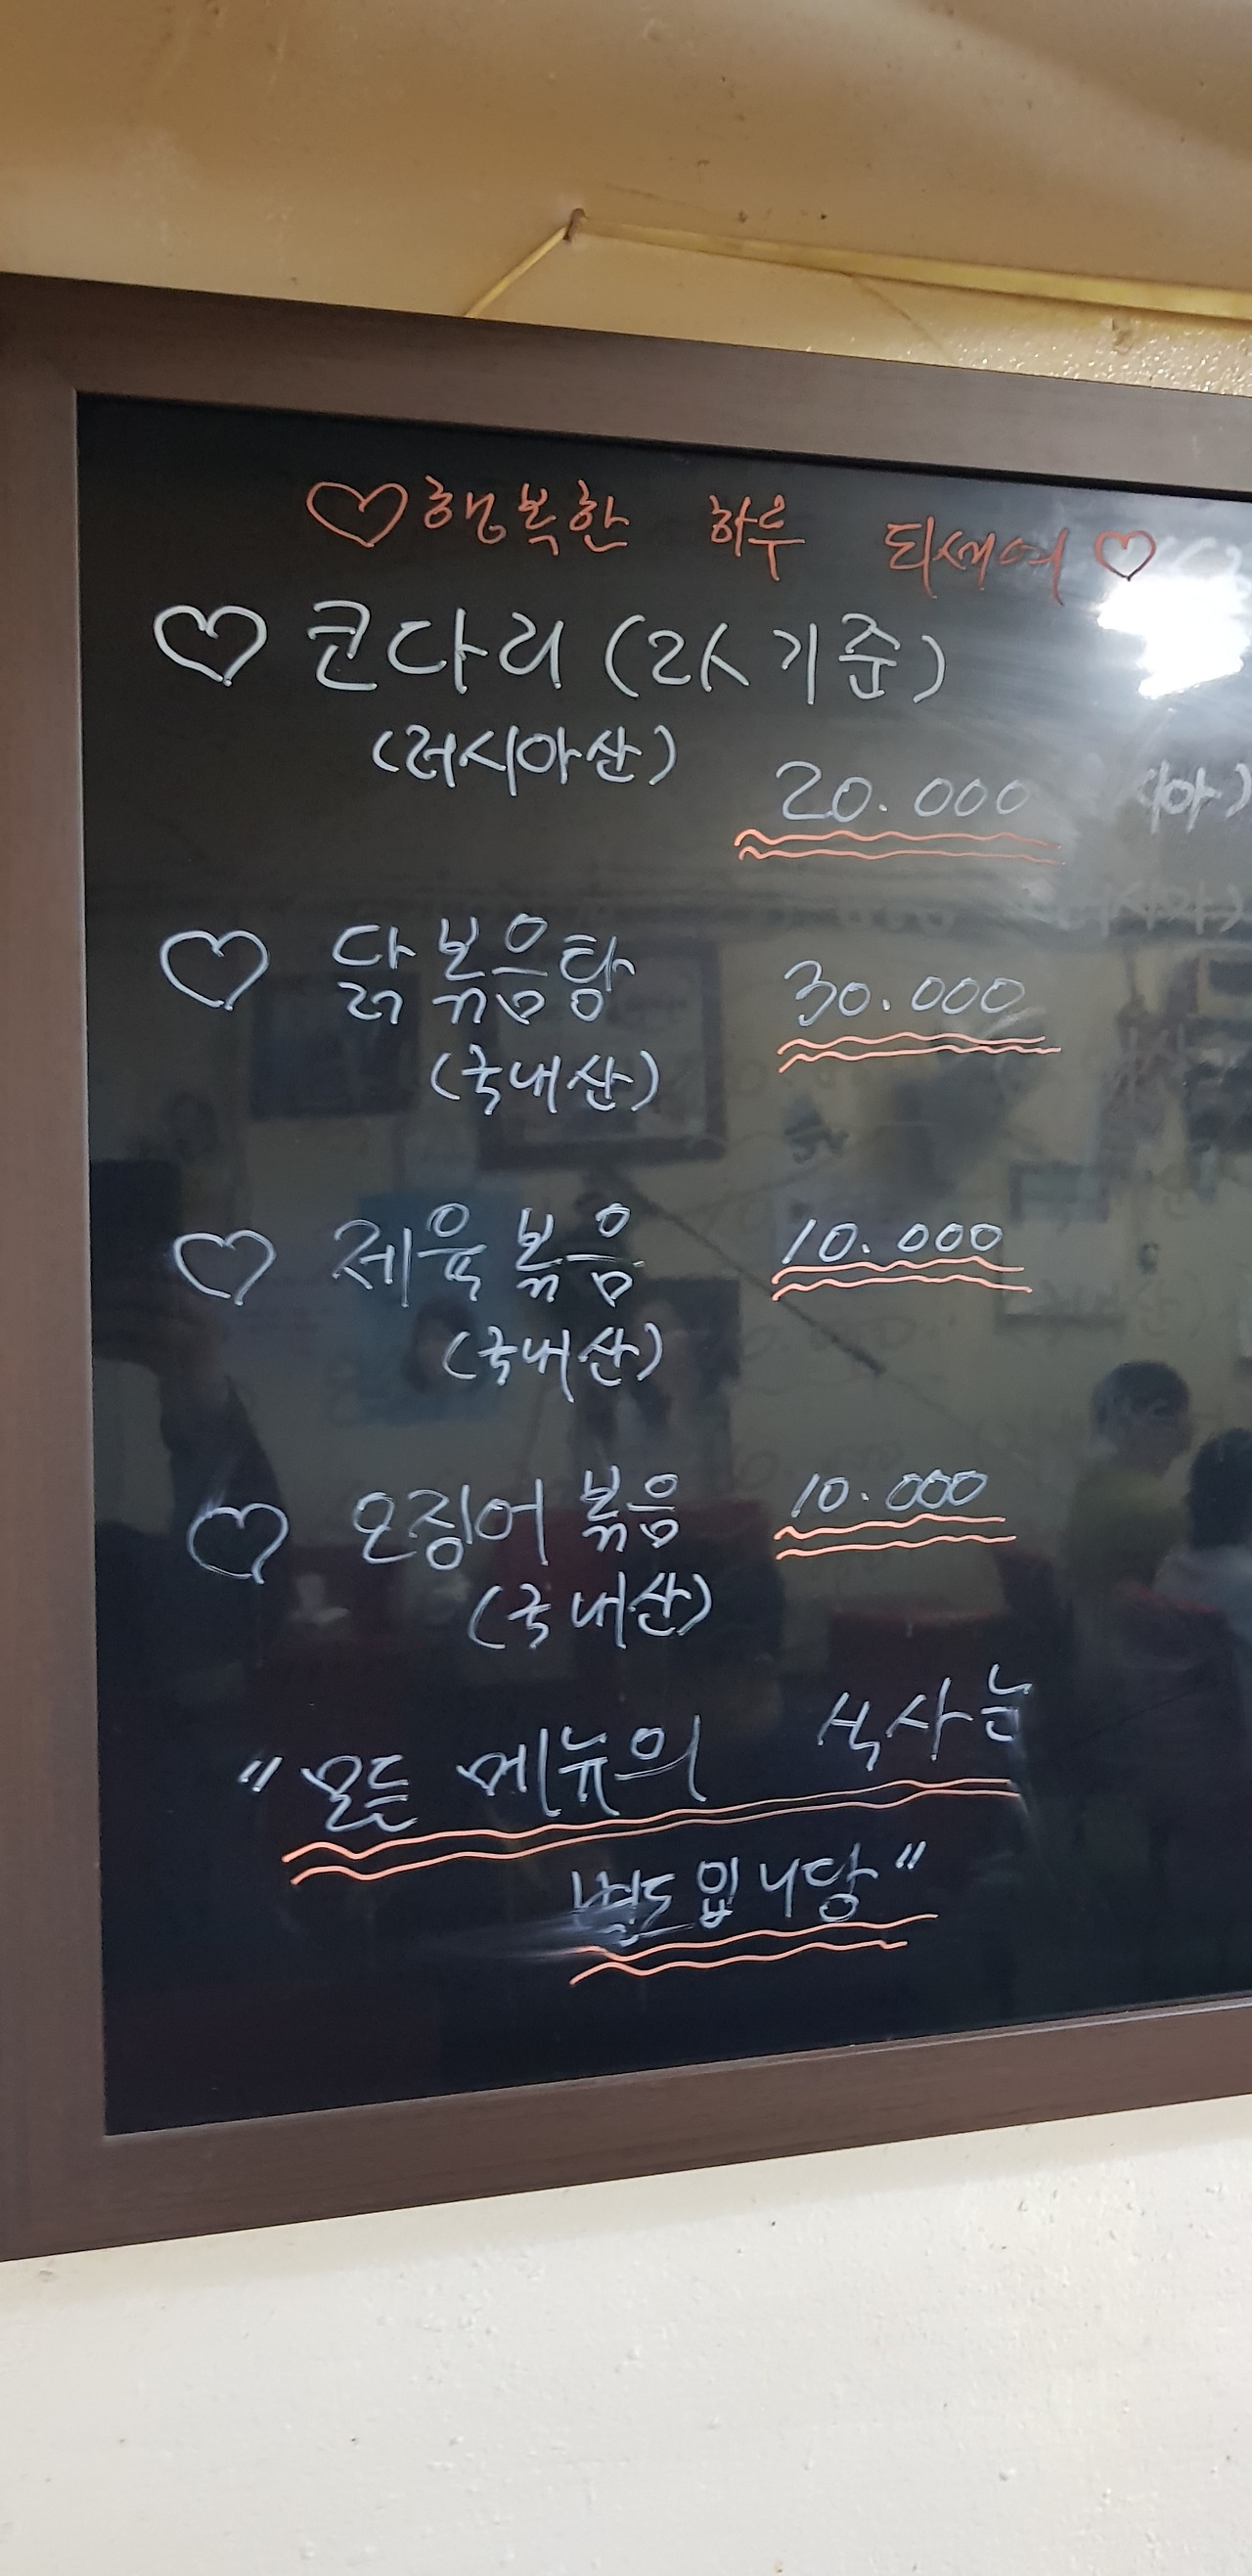 ♡행복한 하루 되세여♡
♡ 코다리 (2人 기준)
(러시아산)
20.000
♡ 닭볶음탕 30.000
(국내산)
♡ 제육볶음 10.000
(국내산)
♡ 오징어볶음 10.000
(국내산)
"모든 메뉴의 식사는
별도입니당"